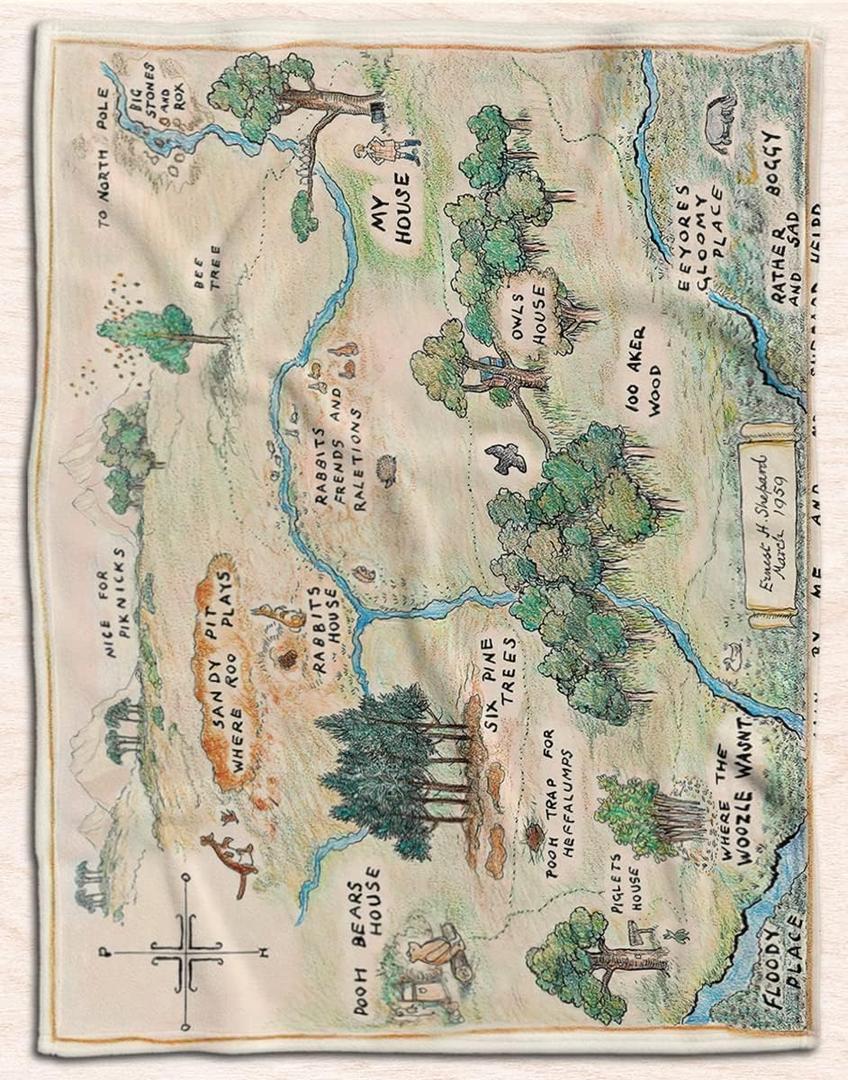 P
O
O
H
NICE FOR
PIKNICKS
TO NORTH POLE
BIG
STONES
AND
ROX
BEE
TREE
SANDY PIT
WHERE ROO PLAYS
POOH BEARS
HOUSE
RABBITS
HOUSE
RABBITS
FRENDS AND
RALETIONS
MY
HOUSE
SIX PINE
TREES
OWLS
HOUSE
POOH TRAP FOR
HEFFALUMPS
PIGLETS
HOUSE
100 AKER
WOOD
EEYORES
GLOOMY
PLACE
WHERE THE
WOOZLE WASNT
RATHER BOGGY
AND SAD
FLOODY
PLACE
Ernest H. Shepard
March 1959
BY ME AND HELPD